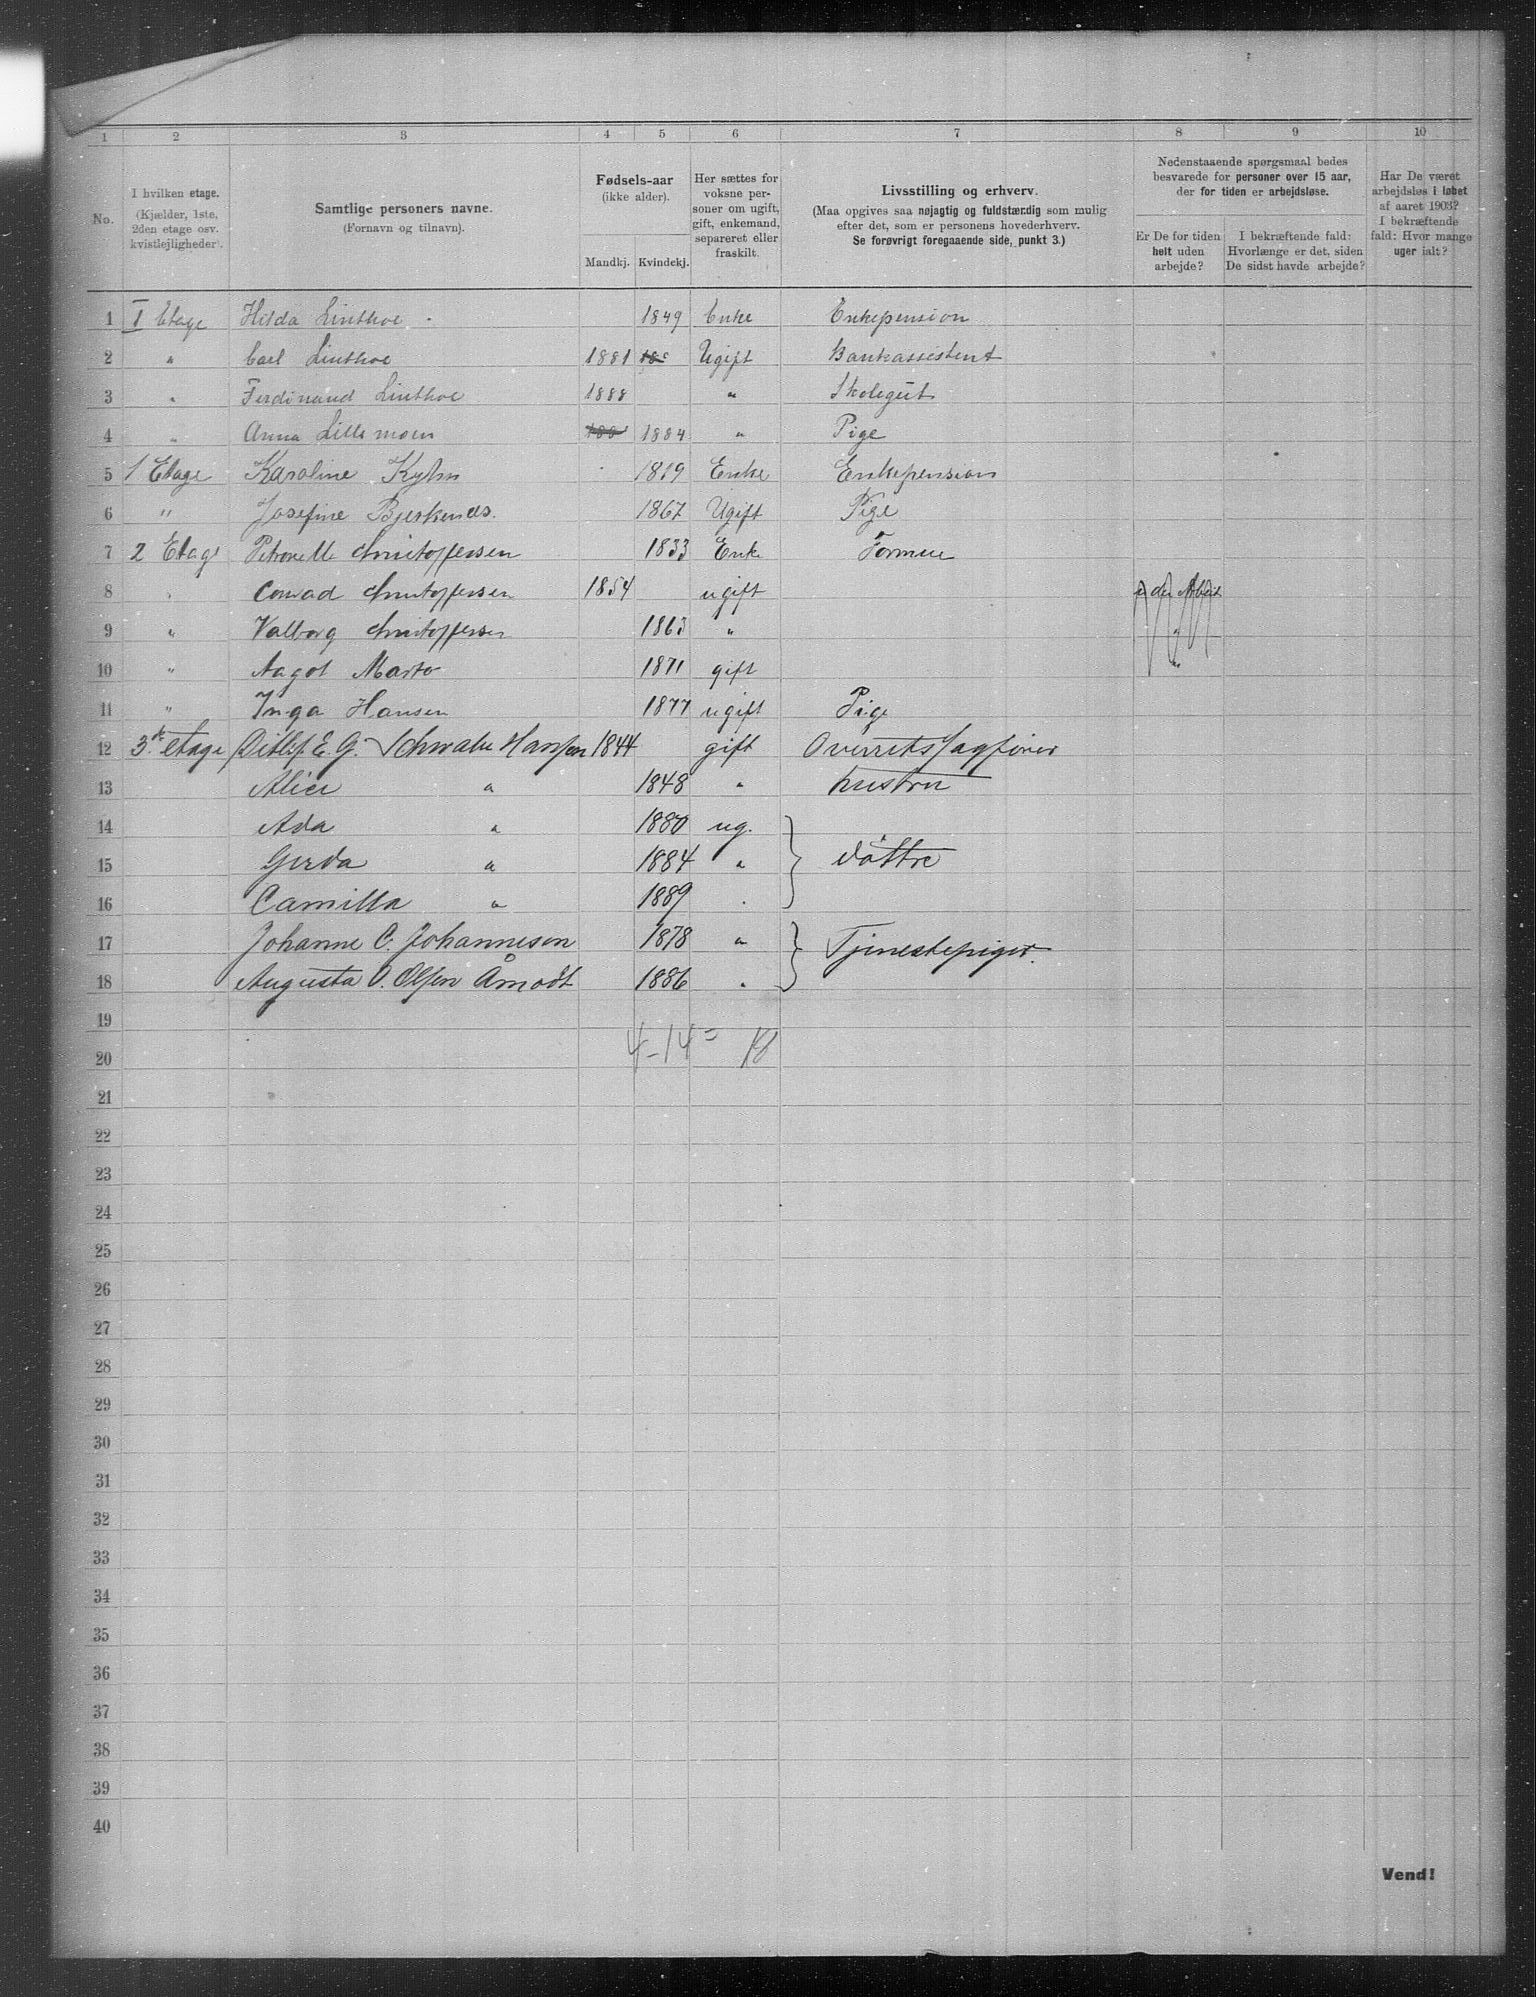 1 2 3 4 5 6 7 8 9 10
No.
I hvilken etage.
(Kjælder, 1ste,
2den etage osv.
kvistlejligheder).
Samtlige personers navne.
(Fornavn og tilnavn).
Fødsels-aar
(ikke alder).
Mandkj. Kvindekj.
Her sættes for
voksne per-
soner om ugift,
gift, enkemand,
separeret eller
fraskilt.
Livsstilling og erhverv.
(Maa opgives saa nøjagtig og fuldstændig som mulig
efter det, som er personens hovederhverv.
Se forøvrigt foregaaende side, punkt 3.)
Nedenstaaende spørgsmaal bedes
besvarede for personer over 15 aar,
der for tiden er arbejdsløse.
Er De for tiden
helt uden
arbejde?
I bekræftende fald:
Hvorlænge er det, siden
De sidst havde arbejde?
Har De været
arbejdsløs i løbet
af aaret 1903?
I bekræftende
fald: Hvor mange
uger ialt?
1 I Etage Hilda Linthoe 1849 Enke Enkepension
2 " Carl Linthoe 1881 Ugift Bankassistent
3 " Ferdinand Linthoe 1888 " Skolegut
4 " Anna Lillemoen 1884 " Pige
5 1 Etage Karoline Kyhn 1819 Enke Enkepension
6 " Josefine Bjerkenes. 1867 Ugift Pige
7 2 Etage Petronelle Christoffersen 1833 Enke Formue
8 " Conrad Christoffersen 1854 ugift
9 " Valborg Christoffersen 1863 "
10 " Aagot 1871 gift
11 " Inga Hansen 1877 ugift Pige
12 3die etage Ditlef E. G. Schwabe Hansen 1844 gift Overretssagfører
13 Alice " 1848 " hustru
14 Ada " 1880 ug.
15 Gerda " 1884 " døttre
16 Camilla " 1889 "
17 Johanne C. Johannesen 1878 " Tjenestepiger.
18 Augusta O. Olsen Åmodt 1886 "
19
4-14= 18
20
21
22
23
24
25
26
27
28
29
30
31
32
33
34
35
36
37
38
39
40
Vend!